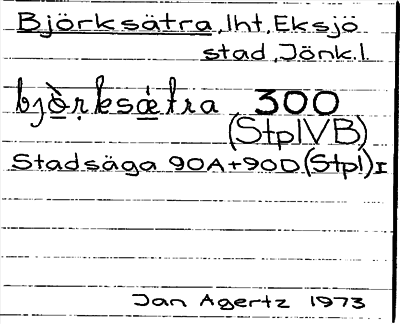 Björksätra, lht, Eksjö
stad, Jönk.l.
bjö̀rksätra 300
(StplVB)
Stadsäga 90A+90D (Stpl) I
Jan Agertz 1973